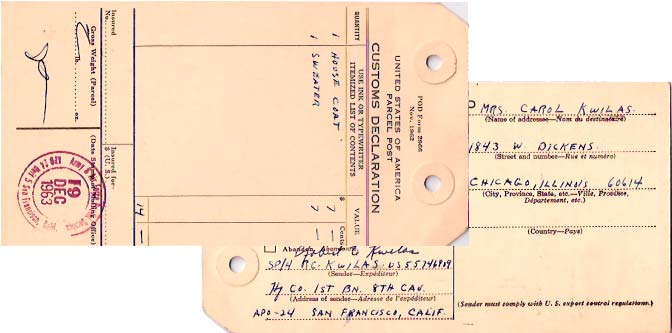 POD Form 2966
Nov. 1962
UNITED STATES OF AMERICA
PARCEL POST
CUSTOMS DECLARATION
USE INK OR TYPEWRITER
ITEMIZED LIST OF CONTENTS
QUANTITY
VALUE
$ Cents
1 HOUSE COAT 7 —
1 SWEATER 7 —
14 —
Insured No.
Insured for
(U.S.)
Gross Weight (Parcel)
lb. oz.
(Date Stamp of Mailing Office)
19
DEC
1963
MRS. CAROL KWILAS.
(Name of addressee—Nom du destinataire)
1843 W. DICKENS
(Street and number—Rue et numéro)
CHICAGO, ILLINOIS 60614
(City, Province, State, etc.—Ville, Province,
Département, etc.)
(Country—Pays)
(Sender must comply with U.S. export control regulations.)
Abandon
Kwilas
SP/4 R.C. KWILAS US55746909
(Sender—Expéditeur)
Hq CO. 1ST BN. 8TH CAV.
(Address of sender—Adresse de l'expéditeur)
APO-24 SAN FRANCISCO, CALIF.